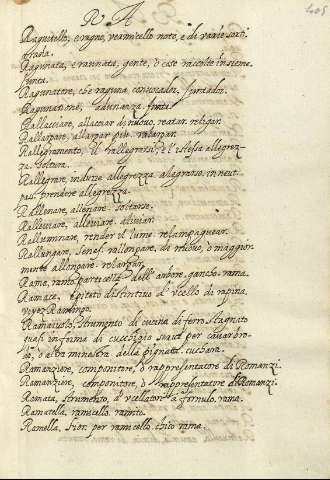 R A
405
Ragnitello, e ragno, vermicello noto, e di varie sorti
Ragunata, e raunata, gente, o cose raccolte insieme.
junta.
Ragunatore, che raguna, convocador, juntador.
Ragunatione, adunanza junta
Rallacciare, allacciar di nuovo, reatar. religar.
Rallargare, allargar più. ralargar.
Rallegramento, il rallegrarsi, e l'istessa allegrez-
za. holtura.
Rallegrare, indurre allegrezza. alegrar. in neut.
pass. prendere allegrezza.
Rallenare, allenare. soltarse.
Ralleviare, alleviare. aliviar.
Ralluminare, render il lume. relampaguear.
Rallungare, senes. rallongare, di nuovo, o maggior-
mente allongare. relargar.
Ramo, ramo particella dell' arbore, gancho. rama.
Ramace, epiteto distintivo d' ucello di rapina.
vide Ramingo.
Ramaiuolo, strumento di cucina di ferro stagnato
quasi in forma di cucchiaio serve per cavar bro-
do, o altra minestra della pignata. cuchara.
Romanziere, componitore, o rappresentatore di Romanzi.
Romanziere, componitore, o rappresentatore di Romanzi.
Ramata, strumento, d' ucellatori a fornuolo. rama.
Ramatella, ramicello. ramito.
Ramella, fior. per ramicello. chico rama.